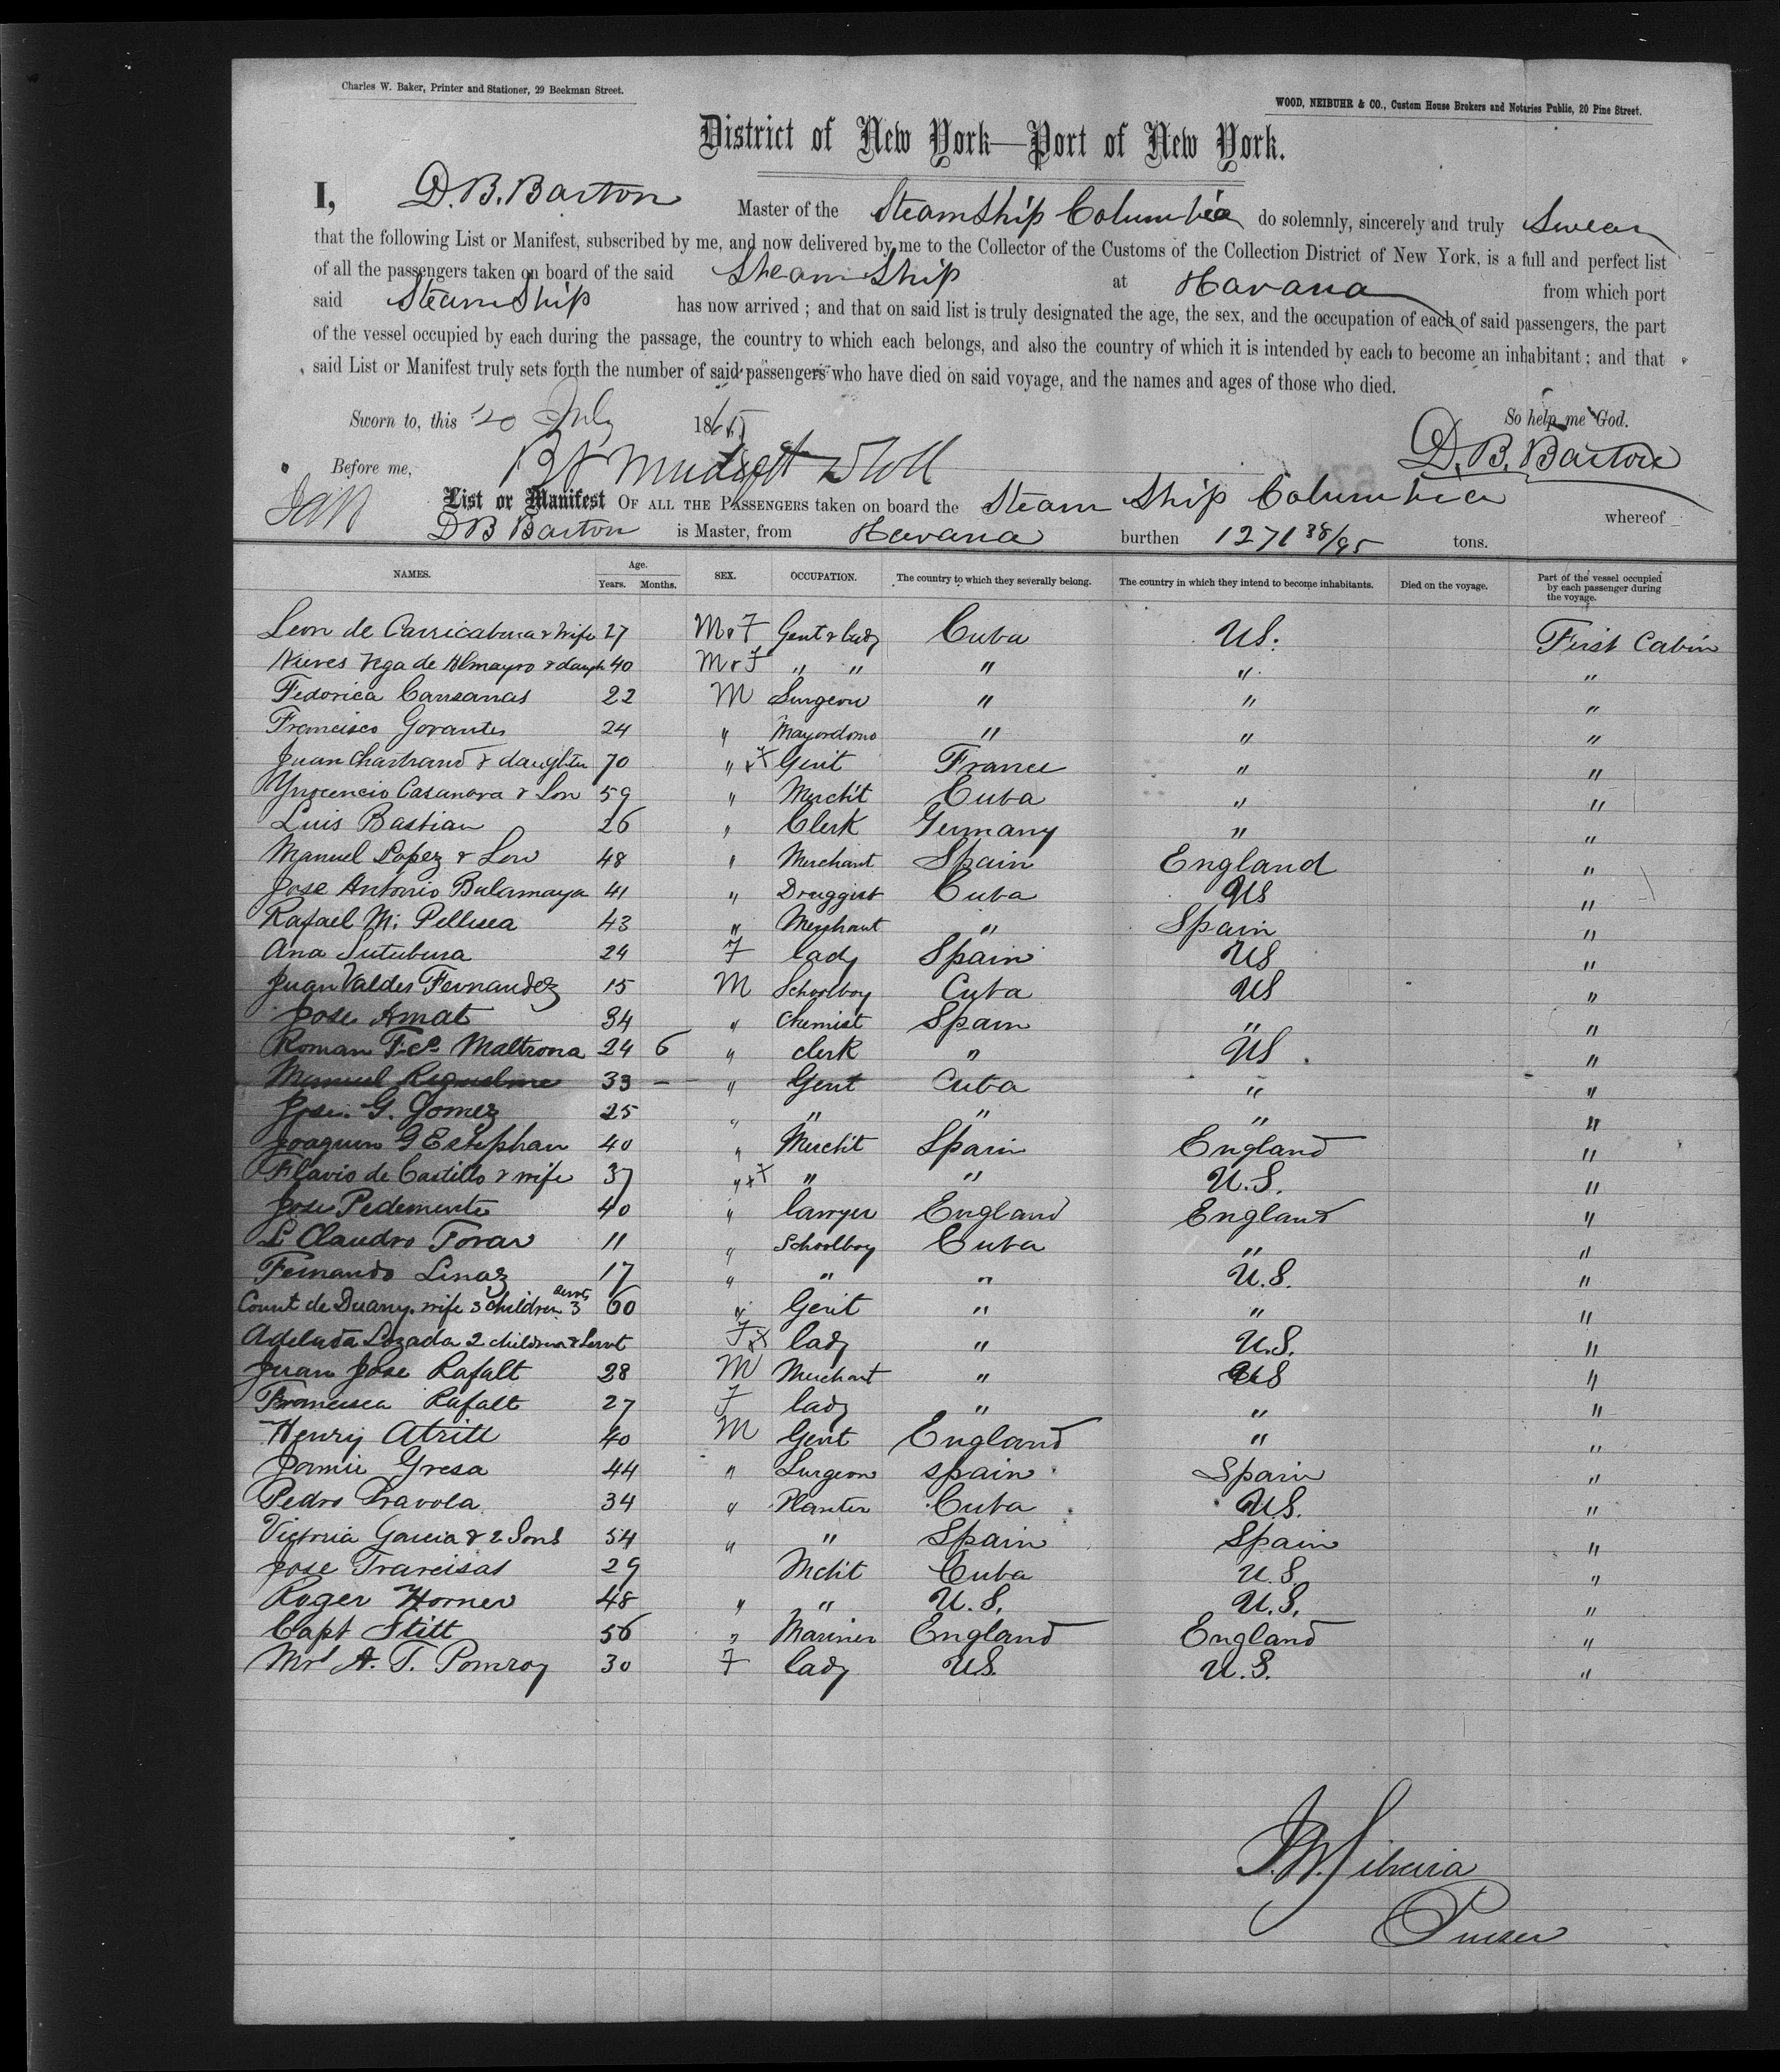 Charles W. Baker, Printer and Stationer, 29 Beekman Street.
WOOD, NEIBUHR & CO., Custom House Brokers and Notaries Public, 20 Pine Street.
District of New York—Port of New York.
I, D. B. Barton Master of the Steam Ship Columbia do solemnly, sincerely and truly Swear
that the following List or Manifest, subscribed by me, and now delivered by me to the Collector of the Customs of the Collection District of New York, is a full and perfect list
of all the passengers taken on board of the said Steam Ship at Havana from which port
said Steam Ship has now arrived; and that on said list is truly designated the age, the sex, and the occupation of each of said passengers, the part
of the vessel occupied by each during the passage, the country to which each belongs, and also the country of which it is intended by each to become an inhabitant; and that
said List or Manifest truly sets forth the number of said passengers who have died on said voyage, and the names and ages of those who died.
Sworn to, this 20 July 186 So help me God.
Before me, D. B. Barton
List or Manifest OF ALL THE PASSENGERS taken on board the Steam Ship Columbia whereof
D B Barton is Master, from Havana burthen 1271 38/95 tons.
NAMES. Age. Years. Months. SEX. OCCUPATION. The country to which they severally belong. The country in which they intend to become inhabitants. Died on the voyage. Part of the vessel occupied by each passenger during the voyage.
Leon de Carricaburu & Wife 27 M & F Gent & Lady Cuba US. First Cabin
Nieves Vega de Almayro & daugh 40 M & F " " " " "
Federica 22 M Surgeon " " "
Francisco 24 " Mayordomo " " "
Juan Chartrand & daughter 70 " & F Gent France " "
Ynocencio Casanova & Son 59 " Mercht Cuba " "
Luis Bastian 26 " Clerk Germany " "
Manuel Lopez & Son 48 " Merchant Spain England "
Jose Antonio Balamaya 41 " Druggist Cuba US "
Rafael M. 43 " Merchant " Spain "
Ana 24 F lady Spain US "
Juan Valdes Fernandez 15 M Schoolboy Cuba US "
Jose Amat 34 " Chemist Spain " "
Roman Fco Maltrona 24 6 " clerk " US "
Manuel Riquelme 33 — " Gent Cuba " "
Jose G. Gomez 25 " " " " "
Joaquin G Estephan 40 " Mercht Spain England "
Flavio de Castillo & wife 37 " & F " " U.S. "
Jose Pedemonte 40 " lawyer England England "
L Claudro Tovar 11 " Schoolboy Cuba " "
Fernando Linaz 17 " " " U.S. "
Count de Duany. wife 3 children 3 servts 60 " Gent " " "
Adeluda Lozada 2 children & Servt F lady " U.S. "
Juan Jose Rafalt 28 M Merchant " US "
Francisca Rafalt 27 F lady " " "
Henry Atrill 40 M Gent England " "
Jamie Gresa 44 " Surgeon Spain Spain "
Pedro 34 " Planter Cuba US. "
Victoria Garcia & 2 Sons 54 " " Spain Spain "
Jose 29 Mcht Cuba U.S. "
Roger Horner 48 " " U.S. U.S. "
Capt Stitt 56 " Mariner England England "
Mrs A. T. Pomroy 30 F lady US. U.S. "
Purser